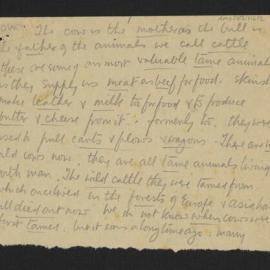 The cow is the mother as the bull is
the father of the animals we call cattle
these are some of our most valuable tame animals
as they supply us meat as beef for food. skins to
make leather & milk for food & to produce
butter & cheese from it. formerly to. they were
used to pull carts & plows waggons. There are no
wild cows now. they are all tame animals living
with man. The wild cattle they were tamed from
which once lived in the forests of Europe & asia have
all died out now. We do not know when cows were
first tamed. but it was a long time ago. many